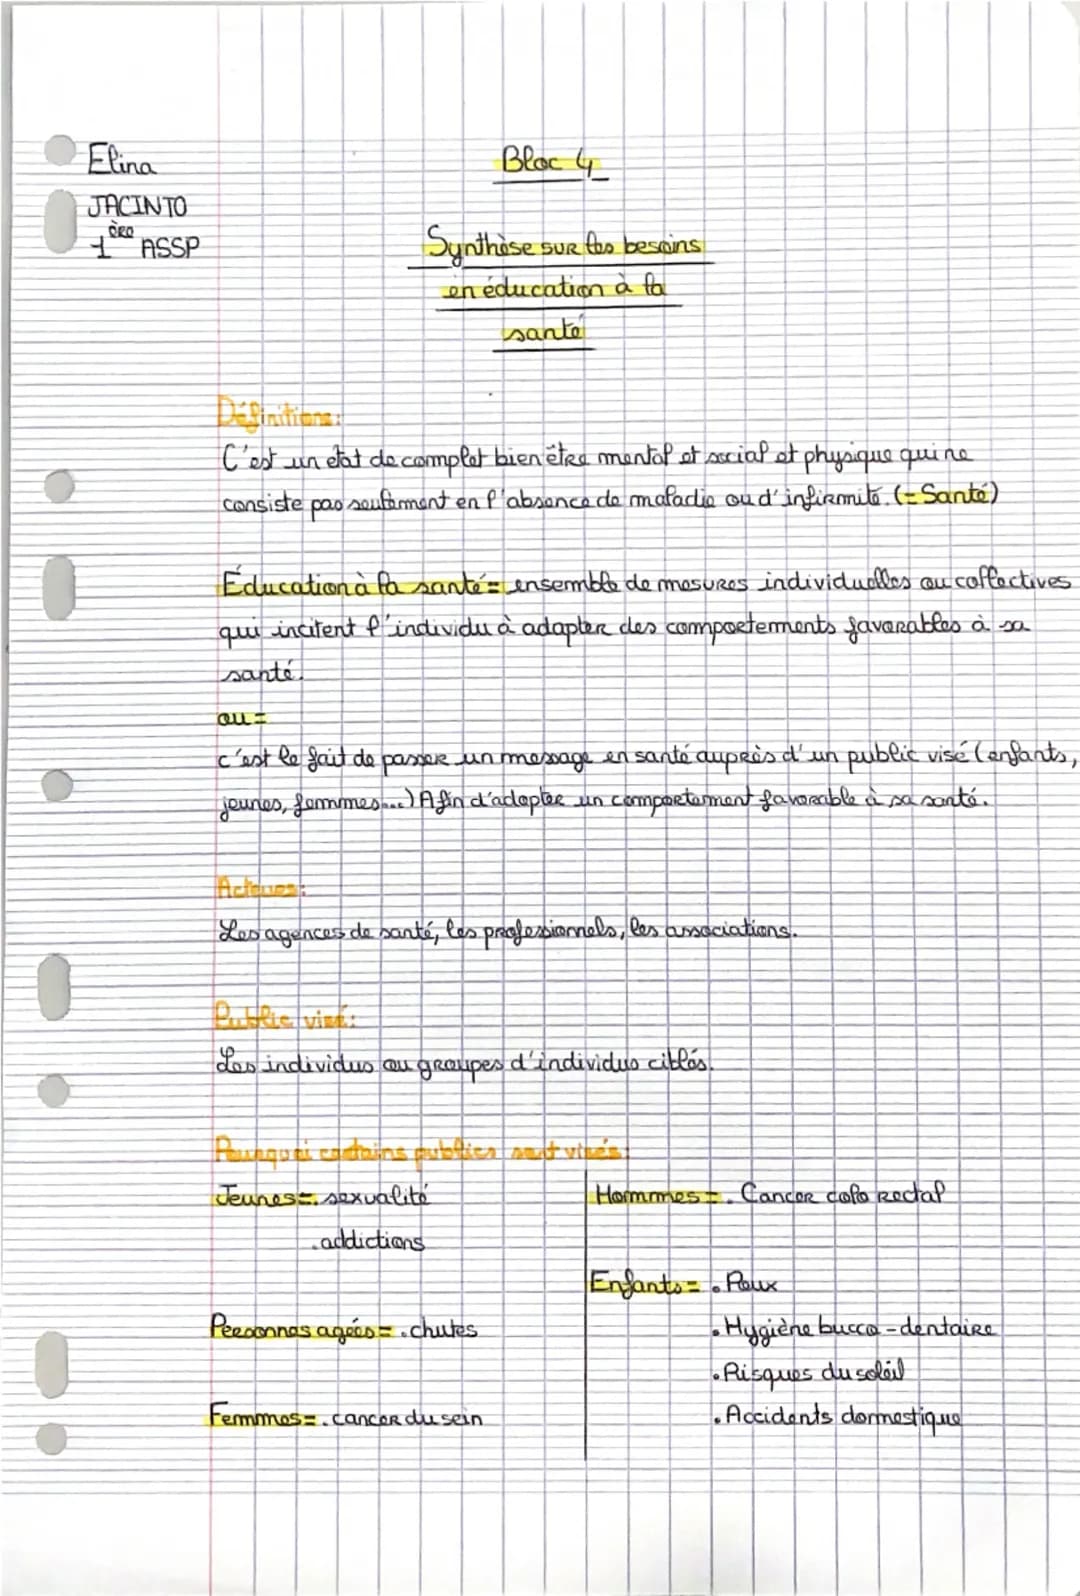 Elina
JACINTO
1ère ASSP
Bloc 4
Synthèse sur les besoins
en éducation à la
santé
Définitions:
C'est un état de complet bien être mental et social et physique qui ne
consiste pas seulement en l'absence de maladie ou d'infirmité. (= Santé)
Éducation à la santé = ensemble de mesures individuelles ou collectives
qui incitent l'individu à adapter des comportements favorables à sa
santé.
ou =
c'est le fait de passer un message en santé auprès d'un public visé (enfants,
jeunes, femmes...) Afin d'adopter un comportement favorable à sa santé.
Acteurs:
Les agences de santé, les professionnels, les associations.
Public visé:
Les individus ou groupes d'individus ciblés.
Pourquoi certains publics sont visés:
Jeunes = . sexualité
. addictions
Personnes agées = . chutes
Femmes = . cancer du sein
Hommes = . Cancer colo rectal
Enfants = . Poux
. Hygiène bucco-dentaire
. Risques du soleil
. Accidents domestique